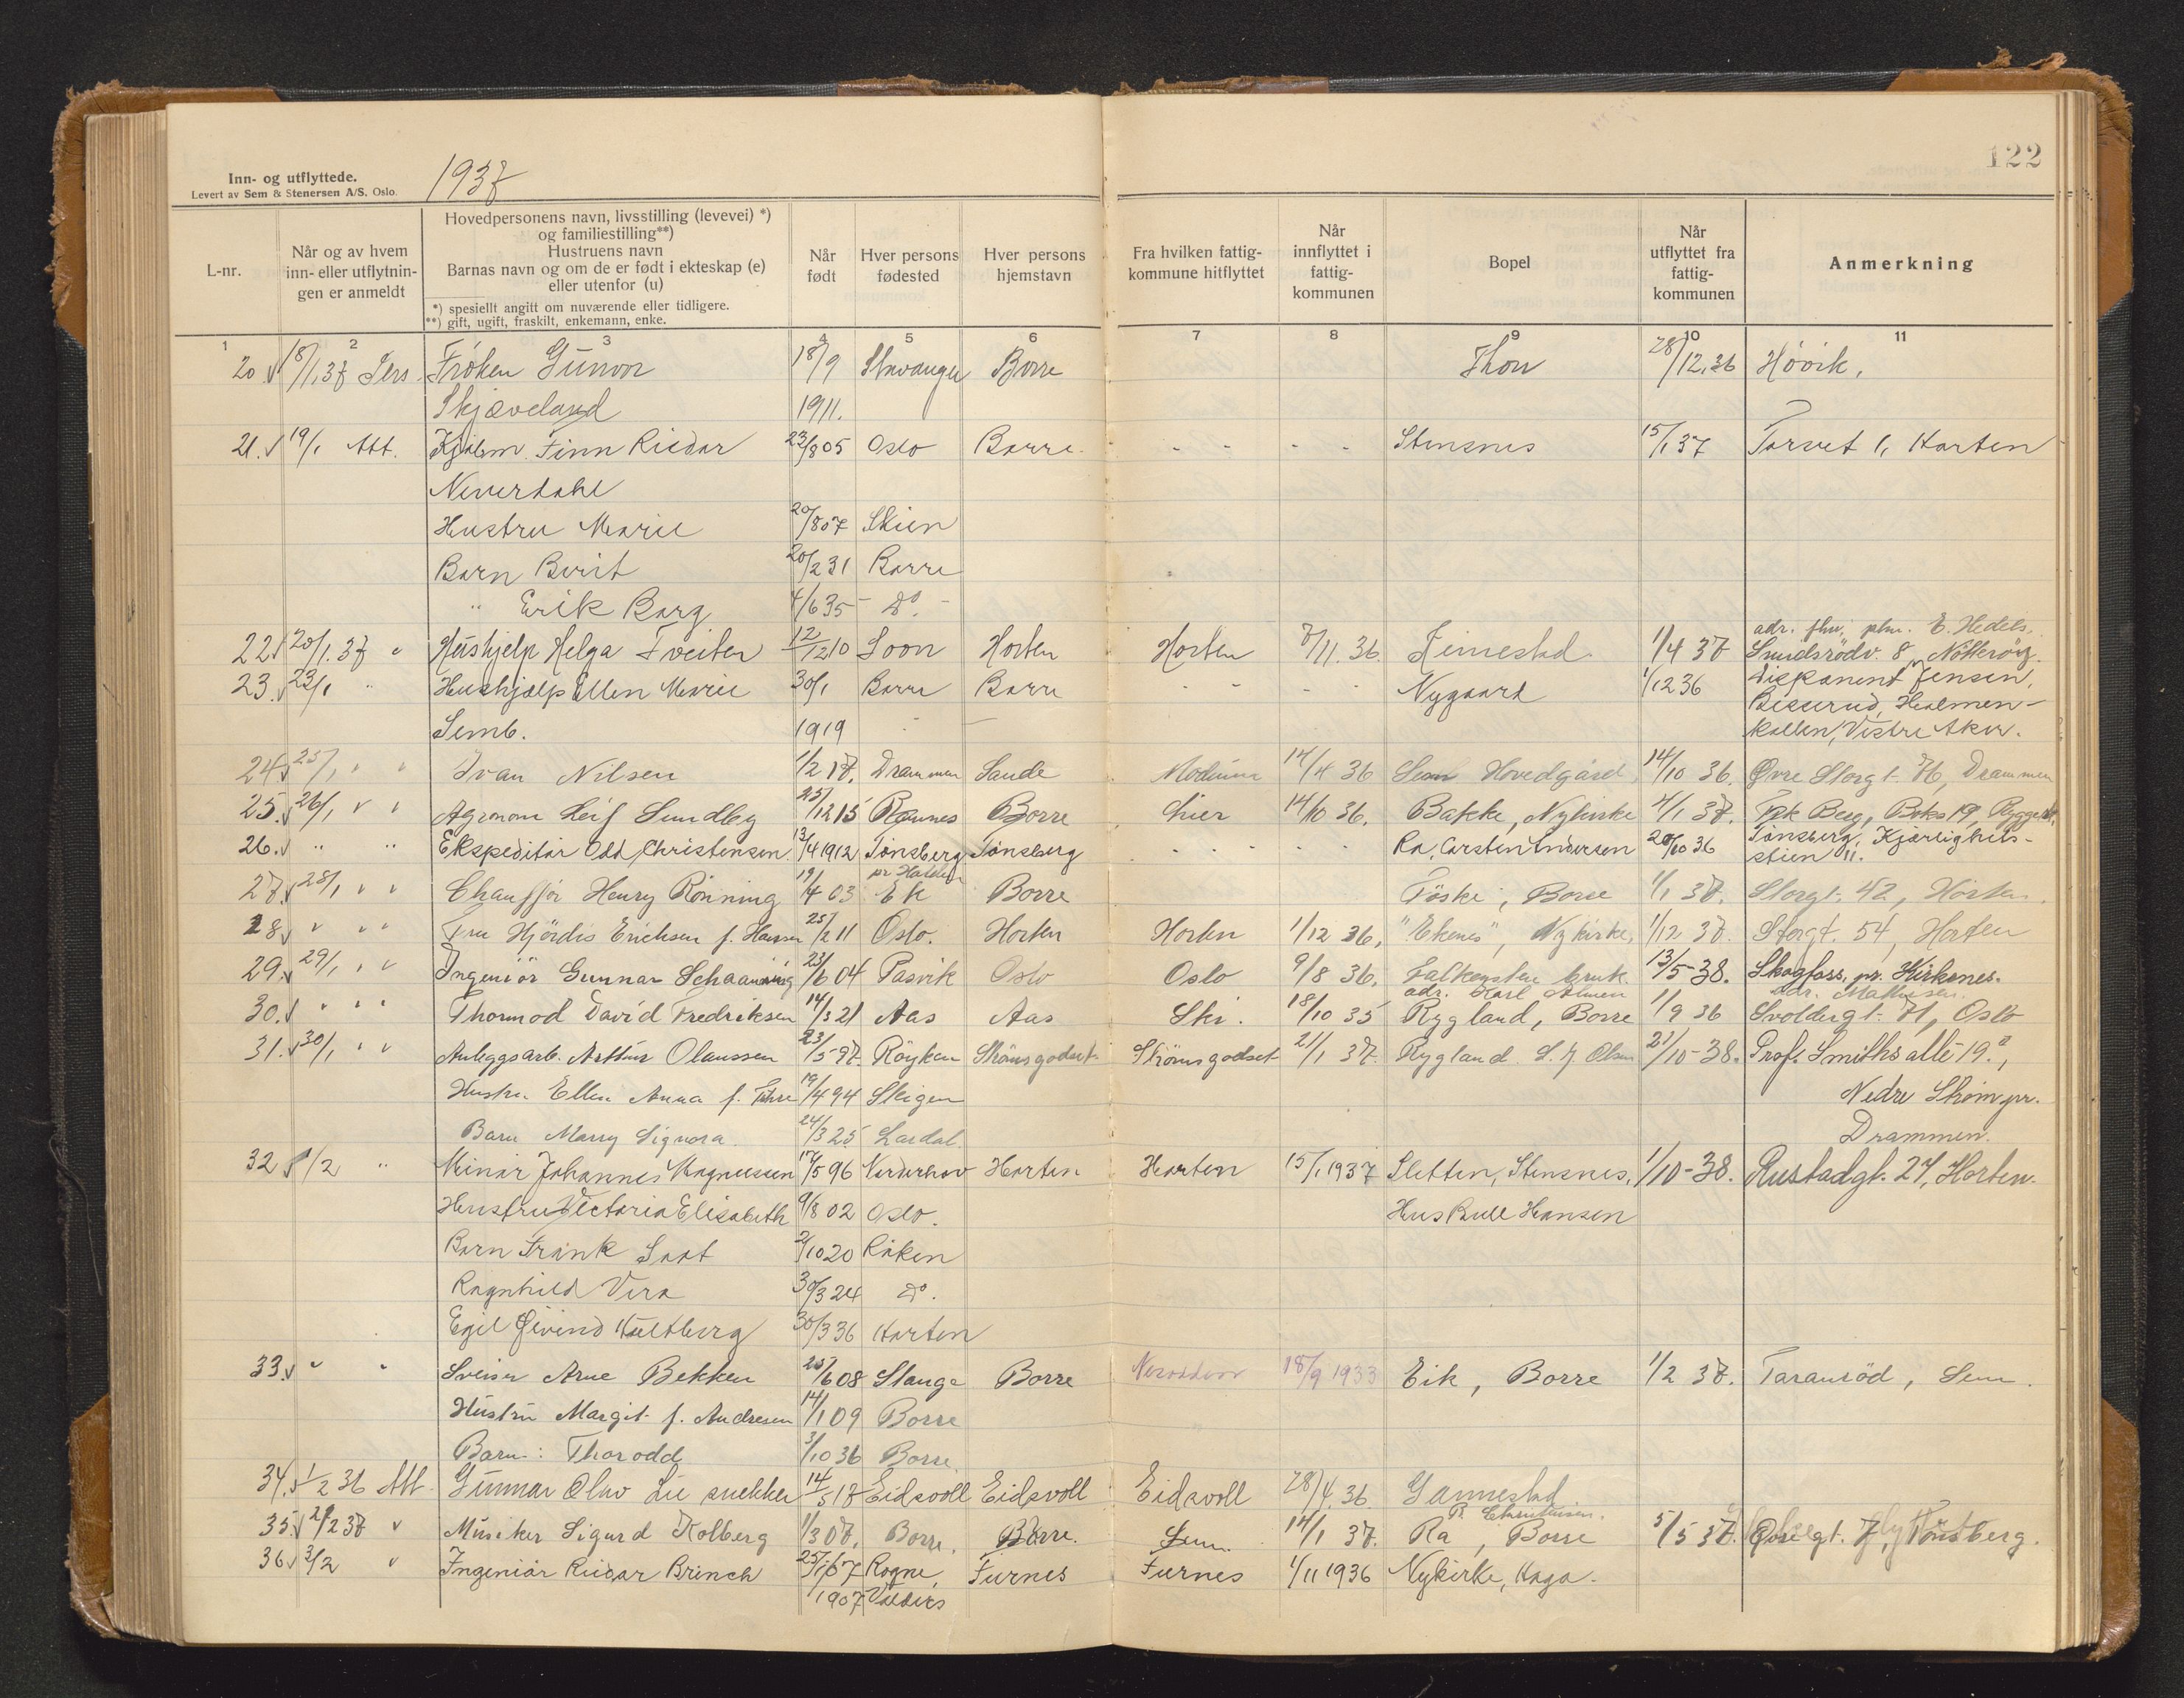 Inn- og utflyttede.
Levert av Sem & Stenersen A/S. Oslo.
1937
122
L-nr.
Når og av hvem inn- eller utflytnin- gen er anmeldt
Hovedpersonens navn, livsstilling (levevei) *) og familiestilling**)
Hustruens navn
Barnas navn og om de er født i ekteskap (e) eller utenfor (u)
*) spesiellt angitt om nuværende eller tidligere.
**) gift, ugift, fraskilt, enkemann, enke.
Når født
Hver persons fødested
Hver persons hjemstavn
Fra hvilken fattig- kommune hitflyttet
Når innflyttet i fattig- kommunen
Bopel
Når utflyttet fra fattig- kommunen
Anmerkning
1 2 3 4 5 6 7 8 9 10 11
20. 18/1.37 Pers. Fröken Gunvor 18/9 Stavanger Borre Thon 28/12.36 Hövik.
Skjæveland 1911.
21. 19/1 Att. Finn Reidar 23/8 05 Oslo Borre - - - - Stensnes 15/1 37 Torvet 1, Horten
Neverdahl
Hustru Marie 20/8 07 Skien
Barn Berit 20/2 31 Borre
" Erik Borg 4/6 35 - Do. -
22. 20/1.37 " Hushjelp Helga Tveiten 12/12 10 Soon Horten Horten 7/11.36. 1/4 37 adr. E. Hedels.
8, Nötteröy.
23. 23/1 " Hushjælp Ellen Marie 30/1 Borre Borre - - - - Nygaard 1/12 36 Disponent Jensen,
Semb. 1919 Besserud, Holmen-
kollen, Vestre Aker.
24. 25/1 " " Ivan Nilsen 1/2 17. Drammen Sande Modum 14/4 36 Sem Hovedgård, 14/10 36. Øvre Storgt. 76, Drammen
25. 26/1 " " Agronom Leif Sundby 25/12 15 Ramnes Borre Lier 14/10 36. Bakke, Nykirke 4/1 37. Boks 19,
26. " " Ekspeditör Odd Christensen 13/4 1912 Tönsberg Tönsberg - - - - - Ra, Carsten Andersen 20/10 36 Tønsberg, Kjærlighets-
stien 11.
27. 28/1 " " Chaufför Henry Rönning 19/4 03 pr Halden Ek Borre Föske, Borre 1/1 37. Storgt. 42, Horten.
28. " " " Fru Hjördis Erichsen f. Hansen 25/2 11 Oslo. Horten Horten 1/12 36, "Ekenes", Nykirke, 1/12 37. Storgt. 54, Horten
29. 29/1 " " Ingeniör Gunnar Schaanning 23/6 04 Pasvik Oslo Oslo 9/8 36. Falkensten bruk. 13/5-38. Skogfoss, pr. Kirkenes.
30. " " " Thormod David Fredriksen 14/3 21 Aas Aas Ski. 18/10 35 adr. Karl Rygland, Borre 1/9 36 adr. Mathisen. Svoldergt. 71, Oslo
31. 30/1 " " Anleggsarb. Arthur Olaussen 23/5 97. Röyken Strömsgodset Strömsgodset 21/1 37. Rygland 21/10-38. Prof. Smiths allé 19.,
Hustru Ellen Anna f. 19/4 94 Steigen Nedre Ström pr.
Barn Marry Signora. 24/3 25 Lardal Drammen.
32 1/2 " Minör Johannes Magnussen 17/5 96 Norderhov Horten Horten 15/1 1937 Sletten, Stensnes, 1/10-38. Rustadgt. 27, Horten.
Hustru Victoria Elisabeth 9/8 02 Oslo. Hus Bull Hansen
Barn Frank 2/10 20 Röken
Ragnhild Vera 30/3 24 Do.
Egil Øivind Hultberg 30/3 36 Horten
33. " " Sveiser Arne Bekken 25/6 08 Stange Borre 18/9 1933 Eik, Borre 1/2 37. Taranröd, Sem.
Hustru Margit f. Andresen 14/1 09 Borre
Barn: Thorodd 3/10 36 Borre.
34. 1/2 36 Att. Gunnar Olav Lie snekker 14/5 17 Eidsvoll Eidsvoll Eidsvoll 28/4.36. Gannestad
35. 2/2 37 " Musiker Sigurd Kolberg 1/3 07. Borre. Borre. Sem. 14/1 37. Ra, Borre 5/5 37. Øvregt. 7, Tönsberg.
36. 3/2 " Ingeniör Reidar Brinch 25/1 07 Rogne, Furnes Furnes 1/11 1936 Nykirke, Haga.
1907 Valdres